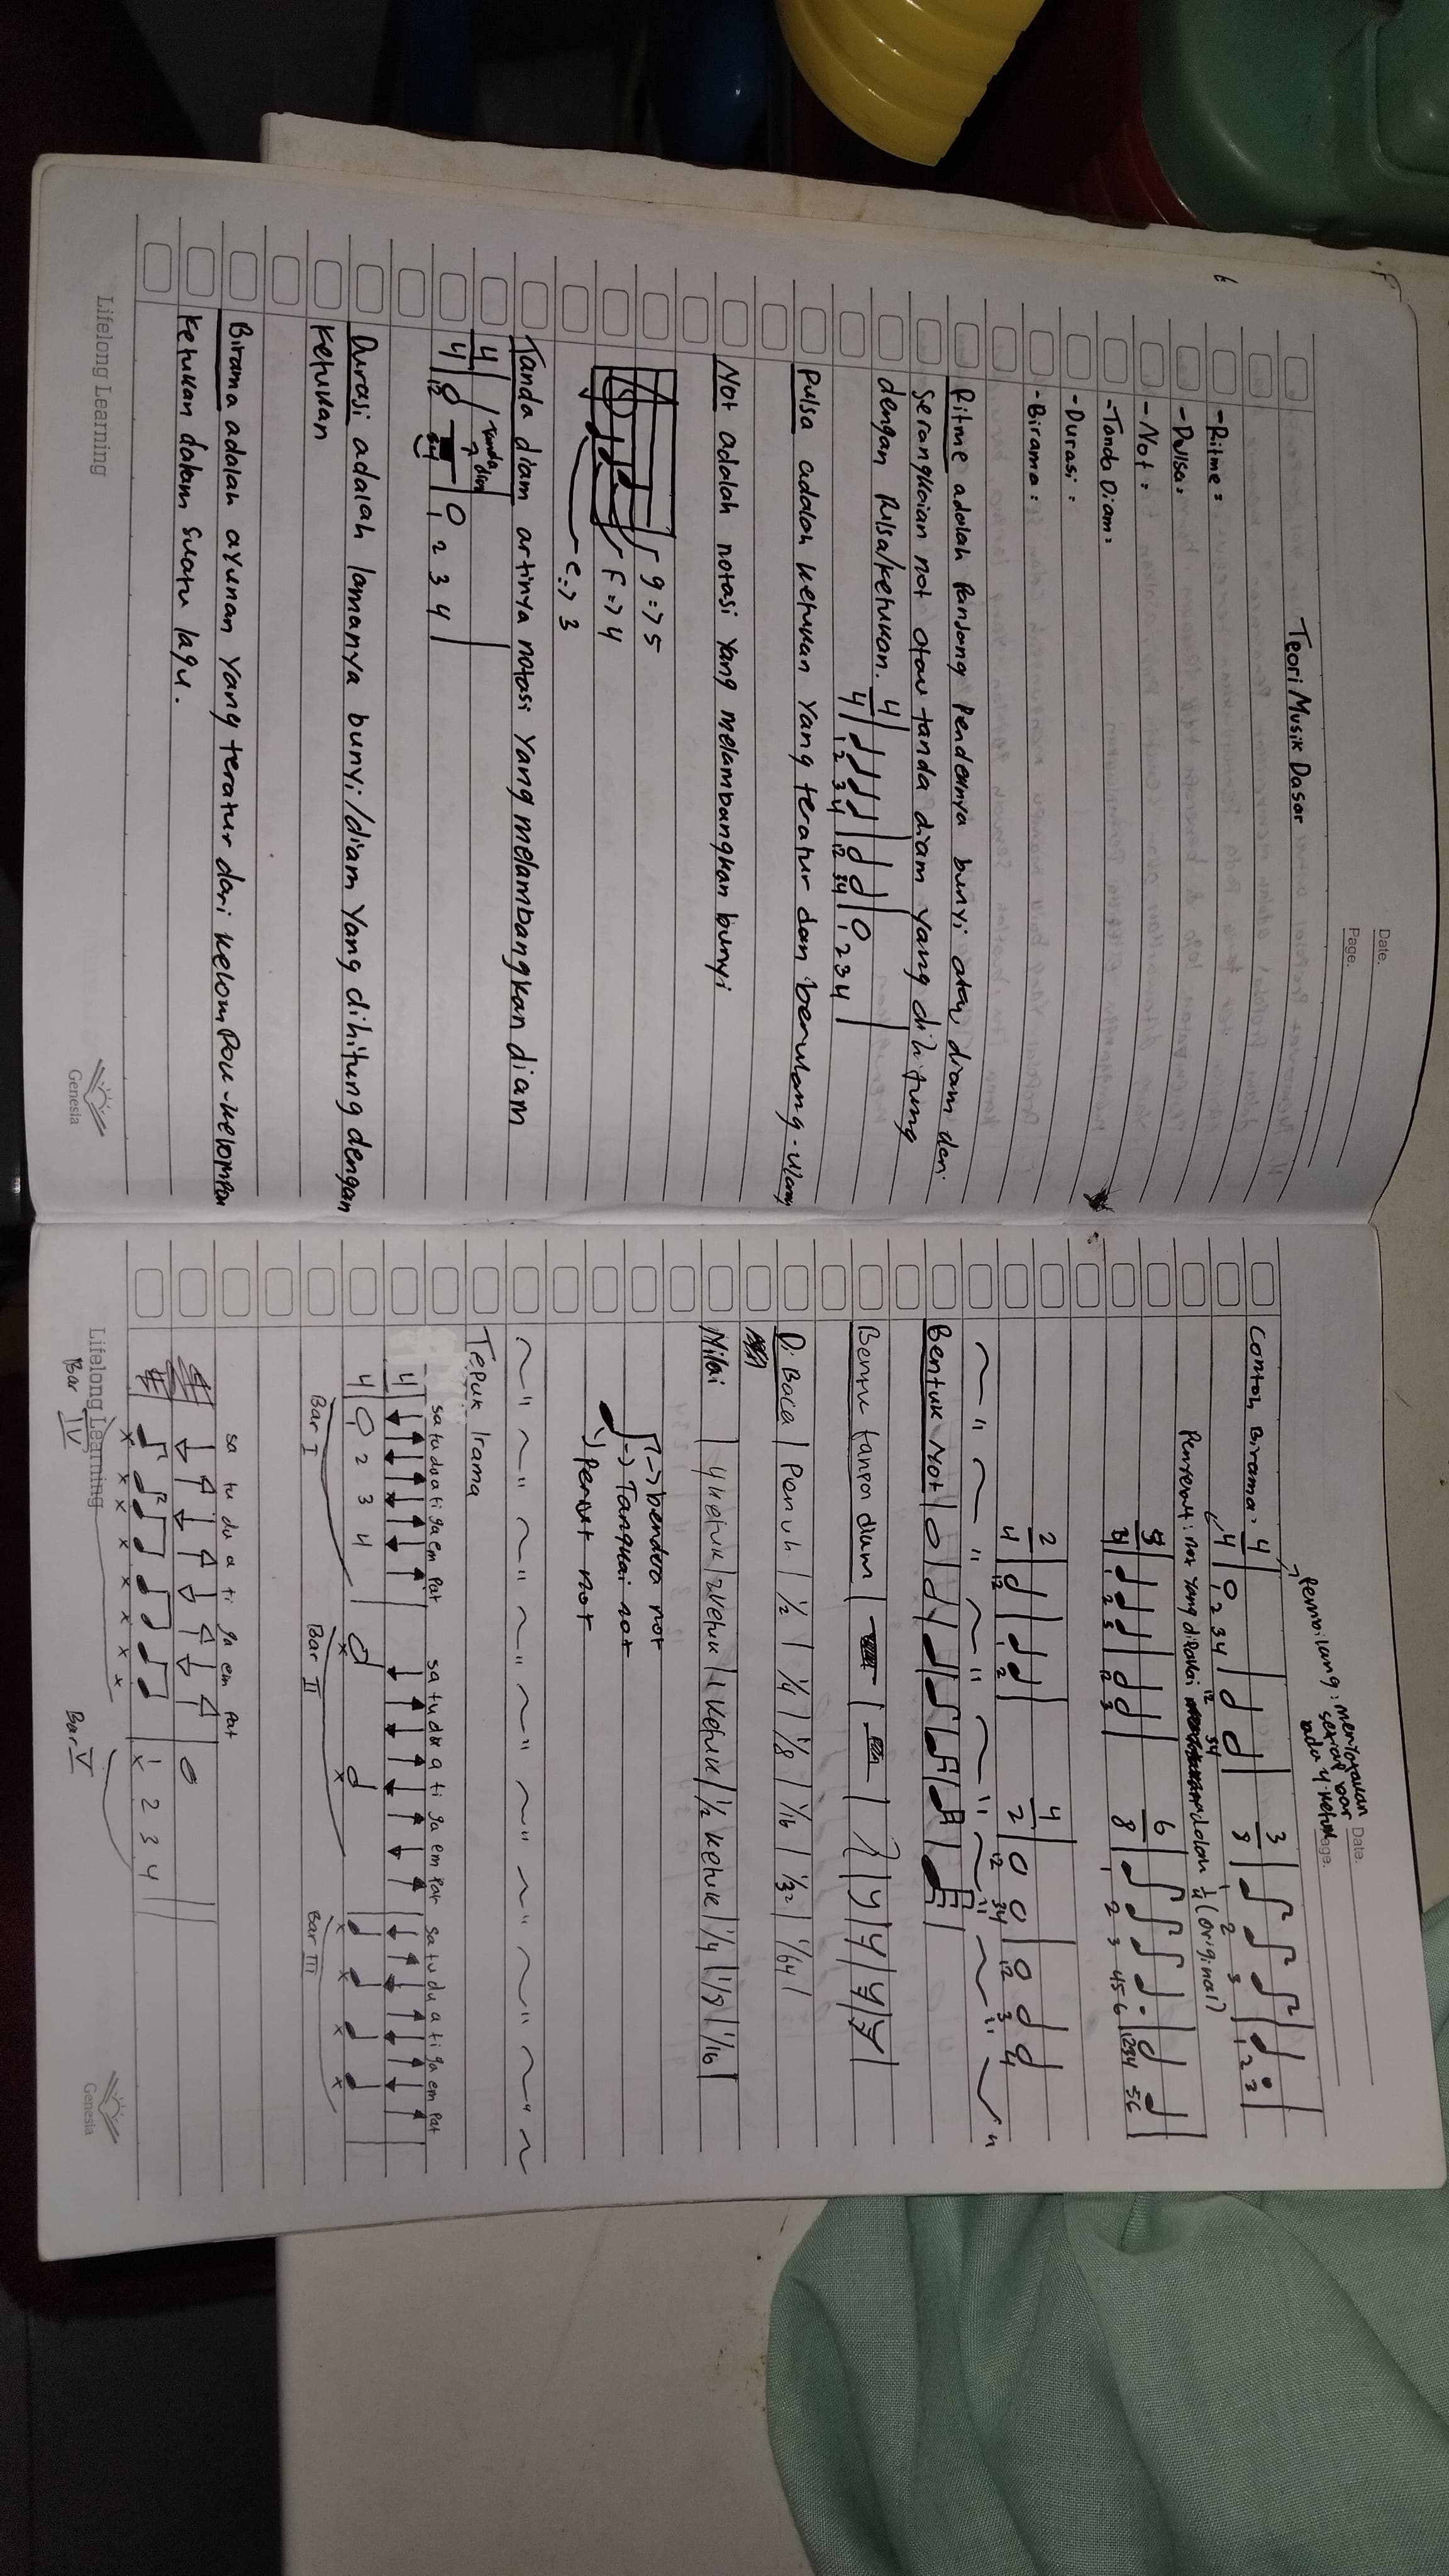 Date.
Page.
Teori Musik Dasar
- Ritme :
- Pulsa :
- Not :
- Tanda Diam :
- Durasi :
- Birama :
Ritme adalah Panjang Pendeknya bunyi atau diam dari
Serangkaian not atau tanda diam yang dihitung
dengan Pulsa/ketukan. 4
4 1 2 3 4 12 34 1 2 3 4
Pulsa adalah ketukan yang teratur dan berulang-ulang
Not adalah notasi yang melambangkan bunyi
g => 5
F => 4
e => 3
Tanda diam artinya notasi yang melambangkan diam
4 tanda diam
4 12 34 1 2 3 4
Durasi adalah lamanya bunyi/diam yang dihitung dengan
ketukan
Birama adalah ayunan yang teratur dari kelompok-kelompok
ketukan dalam suatu lagu.
Lifelong Learning
Genesia
Date.
Page.
Pembilang : menyatakan
setiap bar
ada 4 ketuk
Contoh Birama : 4 3
4 1 2 3 4 12 34 8 1 2 3 1 2 3
Penyebut : not yang dipakai adalah 1/4 (original)
3 6
4 1 2 3 12 3 8 1 2 3 4 5 6 1234 56
2 4
4 12 1 2 2 12 34 12 3 4
Bentuk Not
Bentuk tanda diam
Di Baca | Penuh | 1/2 | 1/4 | 1/8 | 1/16 | 1/32 | 1/64 |
Nilai | 4 ketuk | 2 ketuk | 1 ketuk | 1/2 ketuk | 1/4 | 1/8 | 1/16 |
-> bendera not
-> Tangkai not
-> Perut not
Tepuk Irama
sa tu du a ti ga em pat sa tu du a ti ga em pat sa tu du a ti ga em pat
4
4 1 2 3 4 x x x x x x
Bar I Bar II Bar III
sa tu du a ti ga em pat
x x x x x x x x x 1 2 3 4
Bar IV Bar V
Lifelong Learning
Genesia